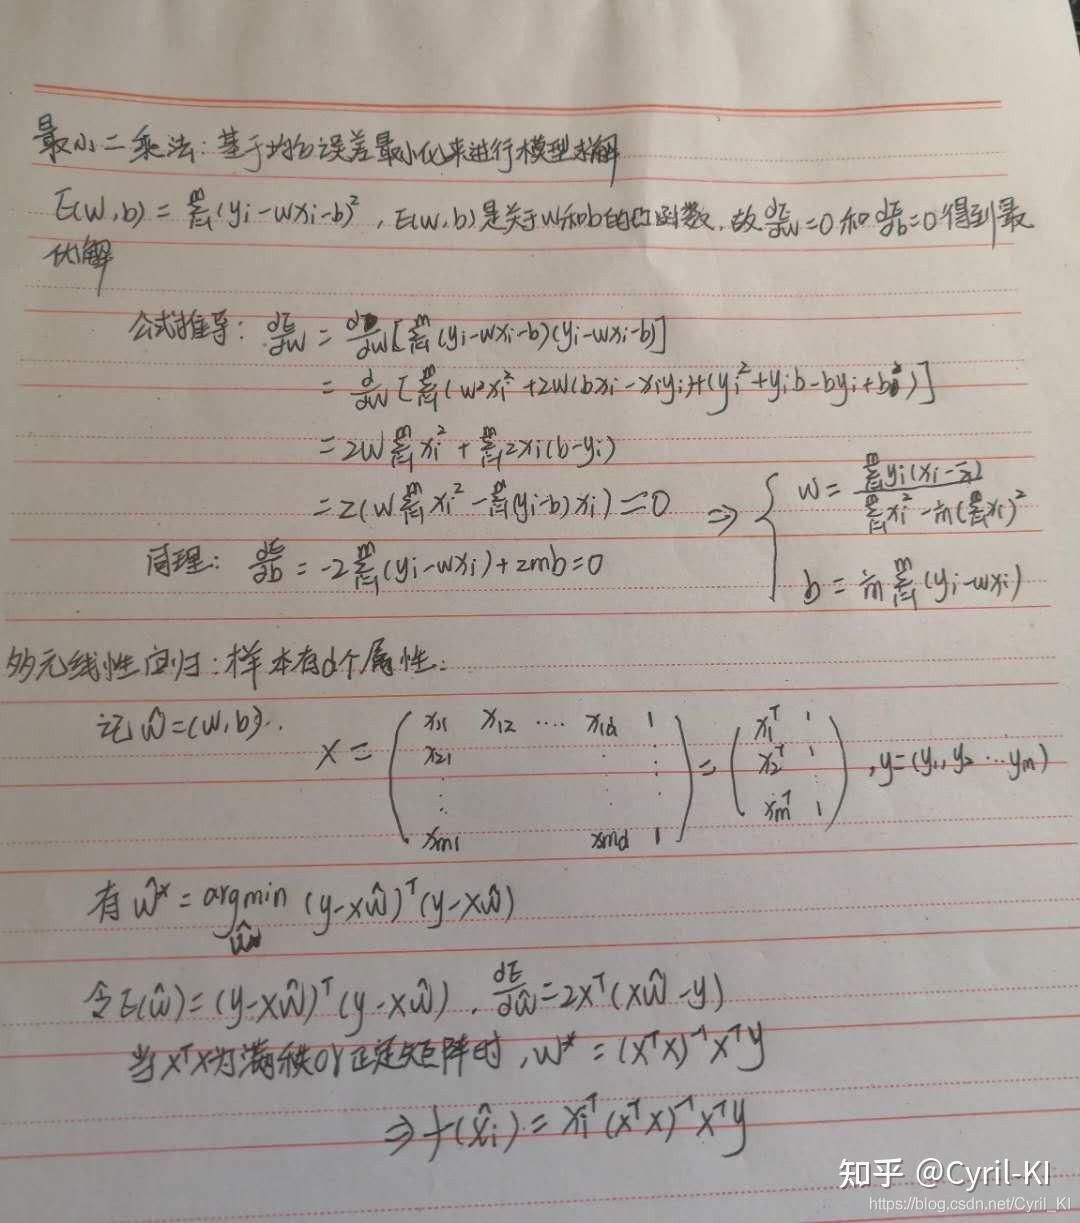 最小二乘法:基于均方误差最小化来进行模型求解
E(w,b) = Σ_{i=1}^m (yi-wxi-b)²,E(w,b)是关于w和b的凸函数,故 dE/dw=0 和 dE/db=0 得到最
优解
公式推导: dE/dw = d/dw[Σ_{i=1}^m (yi-wxi-b)(yi-wxi-b)]
= d/dw [Σ_{i=1}^m (w²xi²+2w(bxi-xiyi)+(yi²+yib-byi+b²)]
= 2w Σ_{i=1}^m xi² + Σ_{i=1}^m 2xi(b-yi)
= 2(w Σ_{i=1}^m xi² - Σ_{i=1}^m (yi-b)xi) = 0 ⇒ { w = Σ_{i=1}^m yi(xi-x̄) / (Σ_{i=1}^m xi² - 1/m(Σ_{i=1}^m xi)²)
同理: dE/db = -2 Σ_{i=1}^m (yi-wxi)+2mb=0
b = 1/m Σ_{i=1}^m (yi-wxi)
多元线性回归:样本有d个属性.
记 ŵ=(w,b).
X = ( x11 x12 ···· x1d 1
x21 ⋮
⋮
xm1 xmd 1 ) = ( x1ᵀ 1
x2ᵀ 1
xmᵀ 1 ) , y=(y1,y2 ···ym)
有 ŵ* = argmin_ŵ (y-Xŵ)ᵀ(y-Xŵ)
令E(ŵ)=(y-Xŵ)ᵀ(y-Xŵ), dE/dŵ=2Xᵀ(Xŵ-y)
当XᵀX为满秩or正定矩阵时,w* = (XᵀX)⁻¹Xᵀy
⇒ f(x̂i) = xiᵀ(XᵀX)⁻¹Xᵀy
知乎 @Cyril-KI
https://blog.csdn.net/Cyril_KI